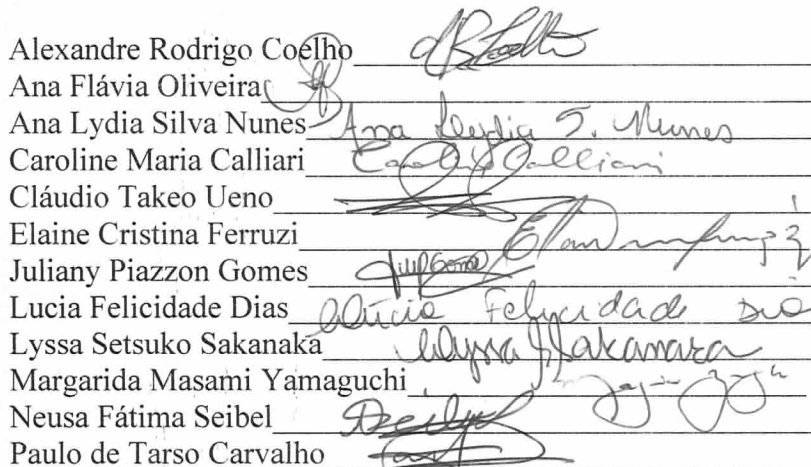 Alexandre Rodrigo Coelho ARCoelho
Ana Flávia Oliveira
Ana Lydia Silva Nunes Ana Lydia S. Nunes
Caroline Maria Calliari Caroline Calliari
Cláudio Takeo Ueno
Elaine Cristina Ferruzi
Juliany Piazzon Gomes
Lucia Felicidade Dias Lúcia Felicidade Dias
Lyssa Setsuko Sakanaka Lyssa S Sakanaka
Margarida Masami Yamaguchi
Neusa Fátima Seibel
Paulo de Tarso Carvalho